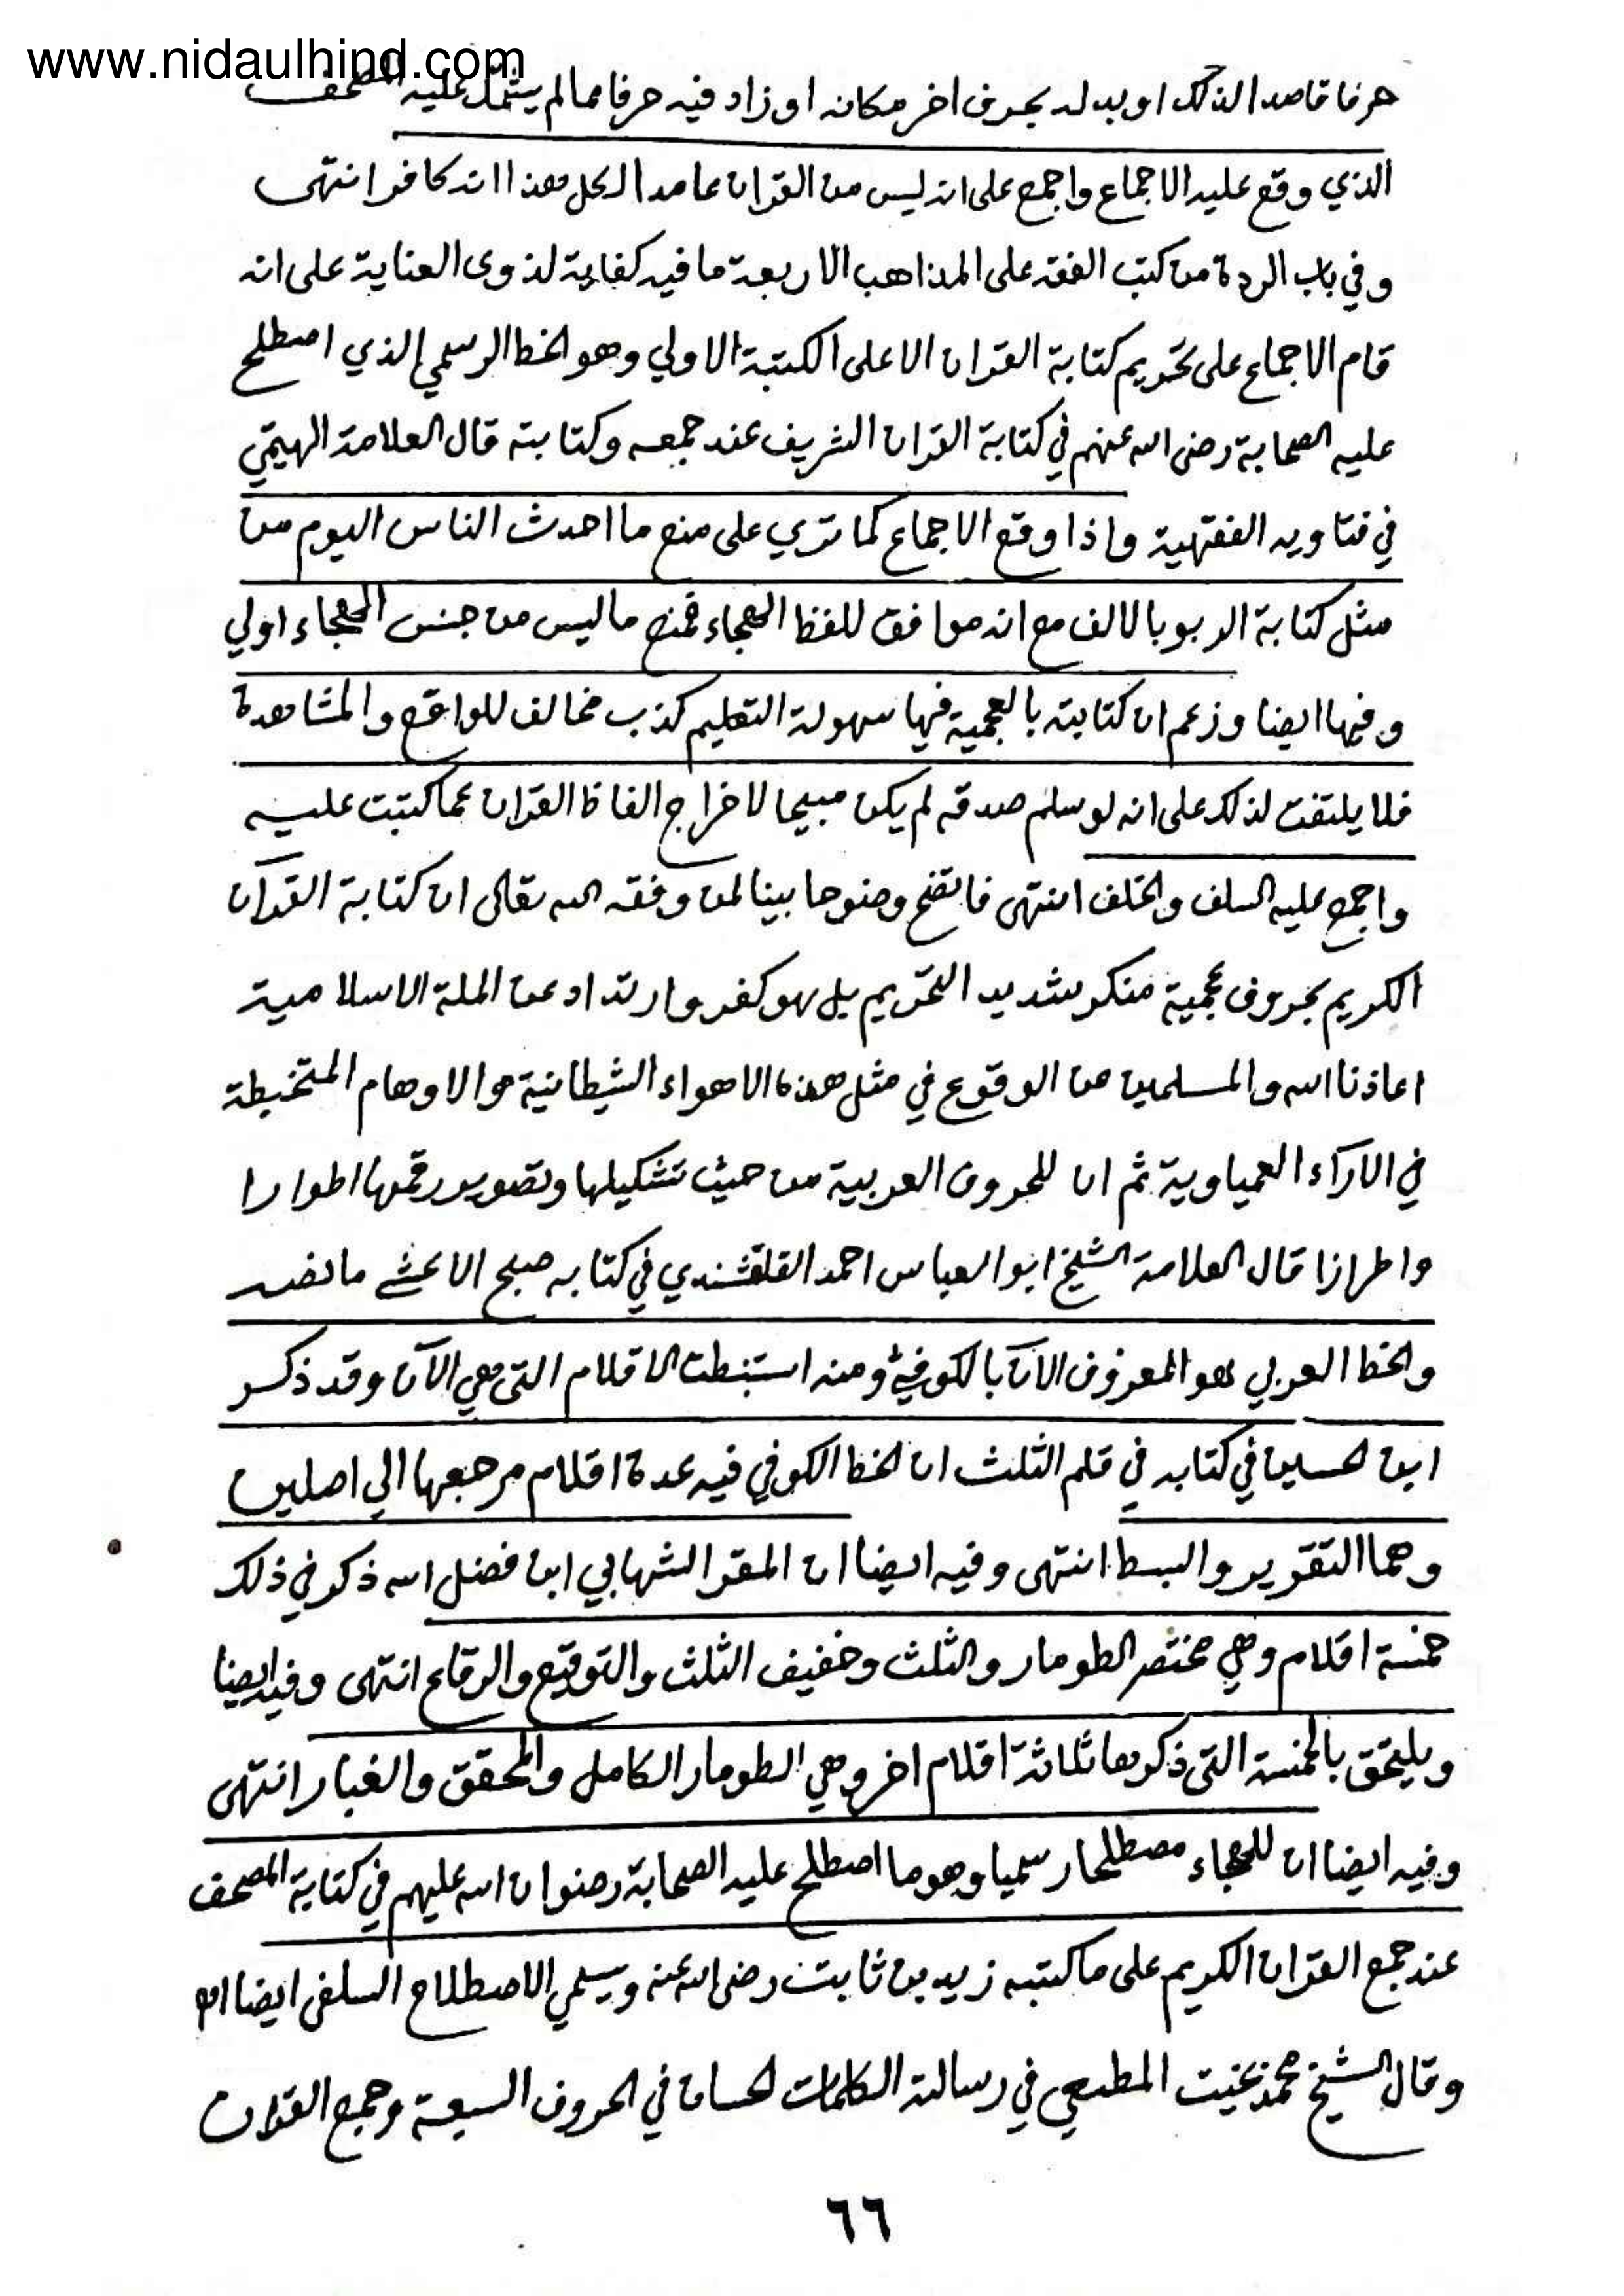 www.nidaulhind.com
حرفا قاصدا لذلك او بدله بحرف اخر مكانه او زاد فيه حرفا مما لم يشتمل عليه المصحف
الذي وقع عليه الاجماع واجمع على انه ليس من القران عامدا لكل هذا انه كافر انتهى
وفي باب الردة من كتب الفقه على المذاهب الاربعة ما فيه كفاية لذوى العناية على انه
قام الاجماع على تحريم كتابة القران الا على الكتبة الاولي وهو الخط الرسمي الذي اصطلح
عليه الصحابة رضى الله عنهم في كتابة القران الشريف عند جمعه وكتابته قال العلامة الهيتمي
في فتاويه الفقهية واذا وقع الاجماع كما تري على منع ما احدث الناس اليوم من
مثل كتابة الربو بالالف مع انه موافق للفظ الهجاء فمنع ما ليس من جنس الهجاء اولي
وفيها ايضا وزعم ان كتابته بالعجمية فيها سهولة التعليم كذب مخالف للواقع والمشاهدة
فلا يلتفت لذلك على انه لو سلم صدقه لم يكن مبيحا لاخراج الفاظ القران عما كتبت عليه
واجمع عليه السلف والخلف انتهى فاتضح وضوحا بينا لمن وفقه الله تعالى ان كتابة القرآن
الكريم بحروف عجمية منكر شديد التحريم بل هو كفر وارتداد عن الملة الاسلامية
اعاذنا الله والمسلمين من الوقوع في مثل هذه الاهواء الشيطانية والاوهام المتخبطة
في الآراء العمياوية ثم ان للحروف العربية من حيث تشكيلها وتصوير رقمها اطوارا
واطرازا قال العلامة الشيخ ابو العباس احمد القلقشندي في كتابه صبح الاعشے ما نصه
والخط العربي هو المعروف الآن بالكوفي ومنه استنبطت الاقلام التى هي الآن وقد ذكر
ابن الحسين في كتابه في قلم الثلث ان الخط الكوفي فيه عدة اقلام مرجعها الي اصلين
وهما التقوير والبسط انتهى وفيه ايضا ان المقر الشهابي ابن فضل الله ذكر في ذلك
خمسة اقلام وهي مختصر الطومار والثلث وخفيف الثلث والتوقيع والرقاع انتهى وفيه ايضا
ويلتحق بالخمسة التى ذكرها ثلاثة اقلام اخر وهي الطومار الكامل والمحقق والغبار انتهى
وفيه ايضا ان للهجاء مصطلحا رسميا وهو ما اصطلح عليه الصحابة رضوان الله عليهم في كتابة المصحف
عند جمع القران الكريم على ما كتبه زيد بن ثابت رضى الله عنه ويسمي الاصطلاح السلفى ايضا اه
وقال الشيخ محمد بخيت المطيعي في رسالته الكلمات الحسان في الحروف السبعة وجمع القران
٦٦